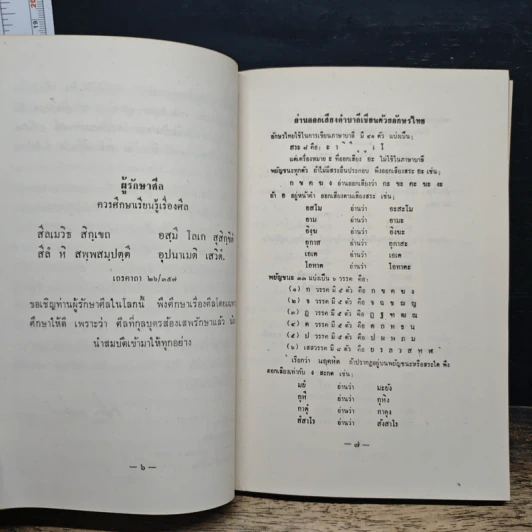 ผู้รักษาศีล
ควรศึกษาเรียนรู้เรื่องศีล
สีลเมวิธ สิกฺเขถ อสฺมึ โลเก สุสิกฺขิตํ
สีลํ หิ สพฺพสมฺปตฺตึ อุปนาเมติ เสวิตํ.
เถรคาถา ๒๖/๓๕๘
ขอเชิญท่านผู้รักษาศีลในโลกนี้ พึงศึกษาเรื่องศีล
ศึกษาให้ดี เพราะว่า ศีลที่กุลบุตรส้องเสพรักษาแล้ว
นำสมบัติเข้ามาให้ทุกอย่าง
— ๖ —
อ่านออกเสียงคำบาลีเขียนด้วยอักษรไทย
อักษรไทยใช้ในการเขียนภาษาบาลี มี ๔๑ ตัว แบ่งเป็น;
สระ ๘ คือ;
แต่เครื่องหมาย ะ ที่ออกเสียง อะ ไม่ใช้ในบาลี
พยัญชนะทุกตัว ถ้าไม่มีสระอื่นประกอบ พึงออกเสียงสระ อะ เช่น;
ก ข ค ฆ ง อ่านออกเสียงว่า กะ ขะ คะ ฆะ งะ
ถ้า อ อยู่หน้าคำ ออกเสียงตามเสียงสระ เช่น;
อสโม อ่านว่า อะสะโม
อาม อ่านว่า อามะ
อิงฺฆ อ่านว่า อิงฆะ
อุกาส อ่านว่า อุกาสะ
เอเต อ่านว่า เอเต
โอหาต อ่านว่า โอหาตะ
พยัญชนะ ๓๓ แบ่งเป็น ๖ วรรค คือ;
(๑) ก วรรค มี ๕ ตัว คือ ก ข ค ฆ ง
(๒) จ วรรค มี ๕ ตัว คือ จ ฉ ช ฌ ญ
(๓) ฏ วรรค มี ๕ ตัว คือ ฏ ฐ ฑ ฒ ณ
(๔) ต วรรค มี ๕ ตัว คือ ต ถ ท ธ น
(๕) ป วรรค มี ๕ ตัว คือ ป ผ พ ภ ม
(๖) เสสวรรค มี ๘ ตัว คือ ย ร ล ว ส ห ฬ
เรียกว่า นฤคหิต ถ้าปรากฏอยู่บนพยัญชนะหรือสระใด พึง
ออกเสียงเท่ากับ ง สะกด เช่น;
มยํ อ่านว่า มะยัง
กุหึ อ่านว่า กุหิง
กาตุํ อ่านว่า กาตุง
สํสาโร อ่านว่า สังสาโร
— ๗ —